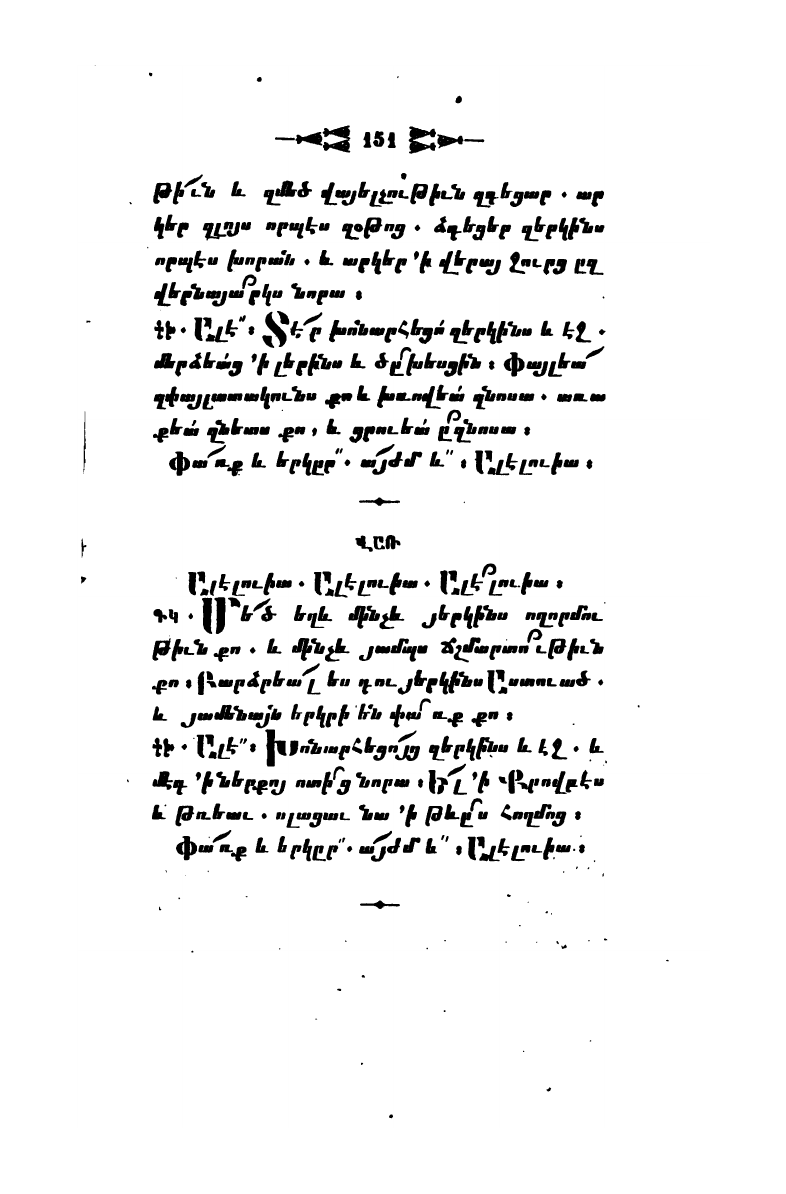 151
թի՜ւն և զմեծ վայելչութիւն զգեցար . ար
կեր զլոյս որպէս զօթոց . ձգեցեր զերկինս
որպէս խորան . և արկեր ՚ի վերայ ջուրց ըզ
վերնայարկս նորա ։
ՎԻ . Ալէ՟ ։ Տէ՜ր խոնարհեցո զերկինս և էջ .
մերձեաց ՚ի լերինս և ծըխեսցին ։ Փայլեա՜
զփայլատակունս քո և խռովեա զնոսա . առա
քեա զնետս քո , և ցրուեա ըզնոսա ։
Փա՜ռք և երկըր՟ . ա՜յժմ և՟ ։ Ալէլուիա ։
ՎԱՌ
Ալէլուիա . Ալէլուիա . Ալէլուիա ։
ԳԿ . Մե՜ծ եղև մինչև յերկինս ողորմու
թիւն քո . և մինչև յամպս ճշմարտութիւն
քո ։ Բարձրեա՜լ ես դու յերկինս Աստուած .
և յամենայն երկրի են փառք քո ։
ՎԻ . Ալէ՟ ։ Խոնարհեցո՜յց զերկինս և էջ . և
մէգ ՚ի ներքոյ ոտից նորա ։ Ե՜լ ՚ի Քրովբէս
և թռեաւ . ոլացաւ նա ՚ի թևըս հողմոց ։
Փա՜ռք և երկըր՟ . ա՜յժմ և՟ ։ Ալէլուիա ։